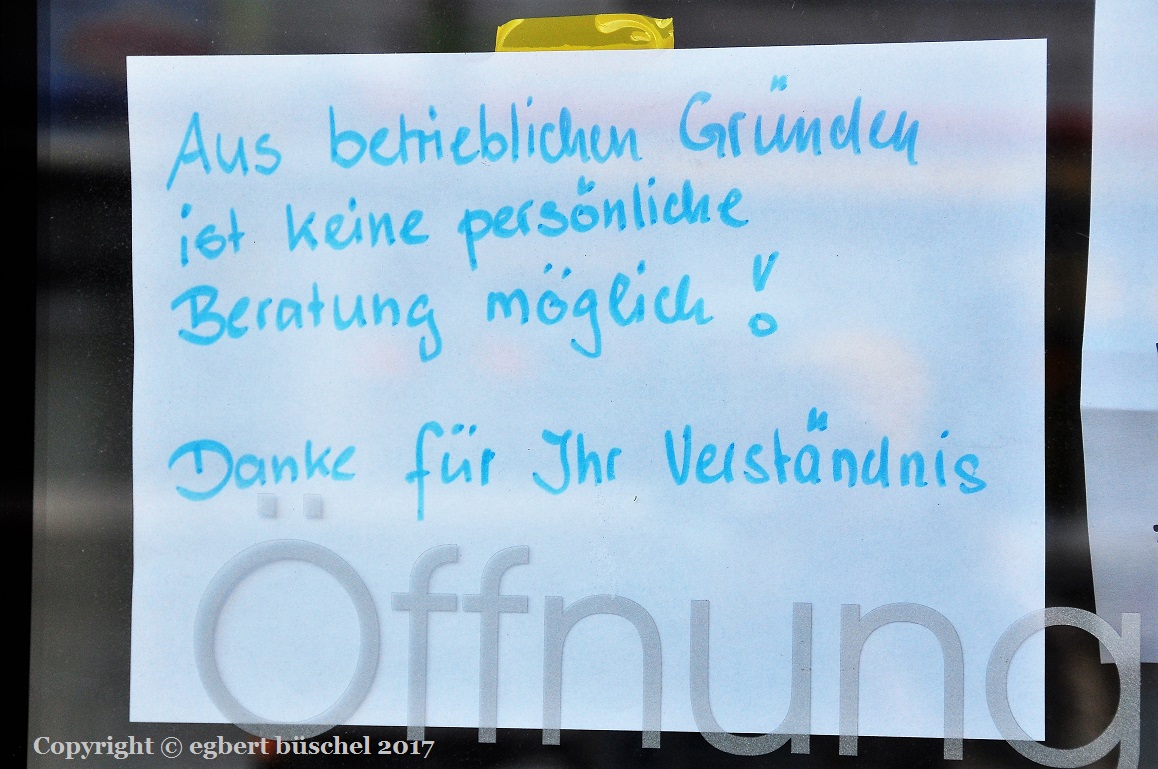 Aus betrieblichen Gründen
ist keine persönliche
Beratung möglich!
Danke für Ihr Verständnis
Öffnung
Copyright © egbert büschel 2017